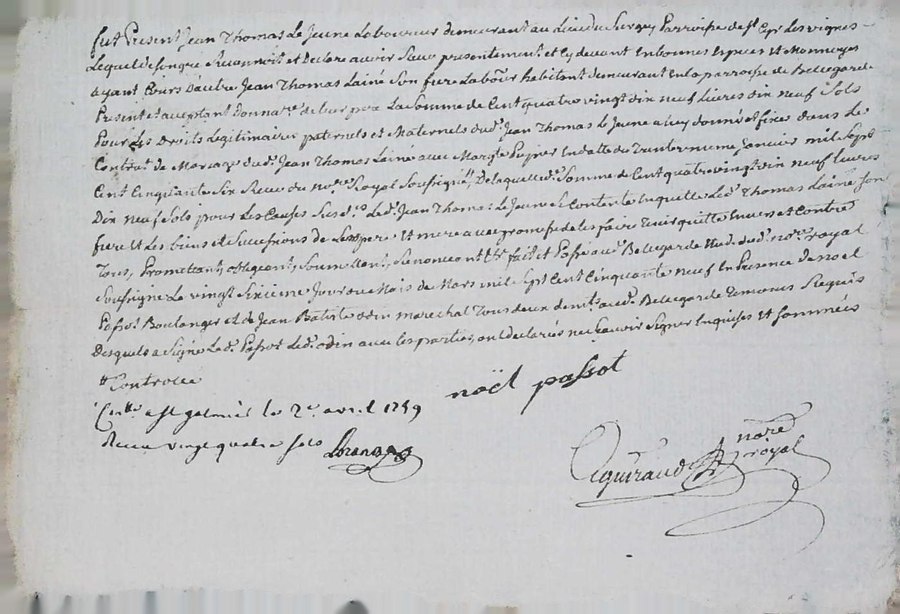 fut Present Jean Thomas Le Jeune Laboureur demeurant au Lieu de Parroisse de st Cyr Les vignes
Lequel de Son gré Reconnoit et Declare avoir Receu presentement et Cy devant En bonnes Espèces Et Monnoyes
ayant Cours D'autre Jean Thomas Lainé Son frere Labour habitant demeurant En la parroisse de Bellegarde
Present et acceptant Donnare. de leur pere La Somme de Cent quatre vingt dix neuf Livres dix neuf Sols
Pour Les Droits Légitimaires paternels et Maternels dud. Jean Thomas Le Jeune a luy donné et fixée dans Le
Contrat de Mariage dud. Jean Thomas Lainé avec En datte du Trente Janvier mil Sept
Cent Cinquante Six Receu du no.re Royal Soussigné, De laquelle d. Somme de Cent quatre vingt dix neuf livres
Dix neuf Sols pour Les Causes Sus d.es Led. Jean Thomas Le Jeune Se Contente En quitte Led. Thomas Lainé Son
frere Et Les biens et Successions de Les pere Et mere avec promesse de les faire Tenir quitte Envers et Contre
Tous, Promettant, obligeant, Soumettant, Renonceant etc. fait et Passé aud. Bellegarde Etude dud. no.re royal
Soussigné Le vingt Sixieme Jour du Mois de Mars mil Sept Cent Cinquante neuf En Presence de Noel
Passot Boulanger et de Jean Batiste odin marechal Tous deux dem.ts aud. Bellegarde Temoins Requis
Desquels a Signé Led. Passot Led. odin avec les parties, ont declarés ne Sçavoir Signer Enquises Et Sommées
Controlée
noël passot
Con.lle a st galmier le 2e avril 1759
Receu vingt quatre sols
Aguiraud nore royal